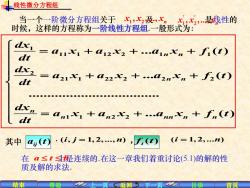 线性微分方程组
当一个一阶微分方程组关于 x₁,x₂,...,xₙ及 x₁',x₂',...是线性的
时候,这样的方程称为一阶线性方程组.一般形式为:
dx₁/dt = a₁₁x₁ + a₁₂x₂ + ...a₁ₙxₙ + f₁(t)
dx₂/dt = a₂₁x₁ + a₂₂x₂ + ...a₂ₙxₙ + f₂(t)
........................................
dxₙ/dt = aₙ₁x₁ + aₙ₂x₂ + ...aₙₙxₙ + fₙ(t)
其中 aᵢⱼ(t) (i, j = 1,2,...,n), fᵢ(t) (i = 1,2,...n)
在 a ≤ t ≤ 是连续的.在这一章我们着重讨论(5.1)的解的性
质及解的求法.